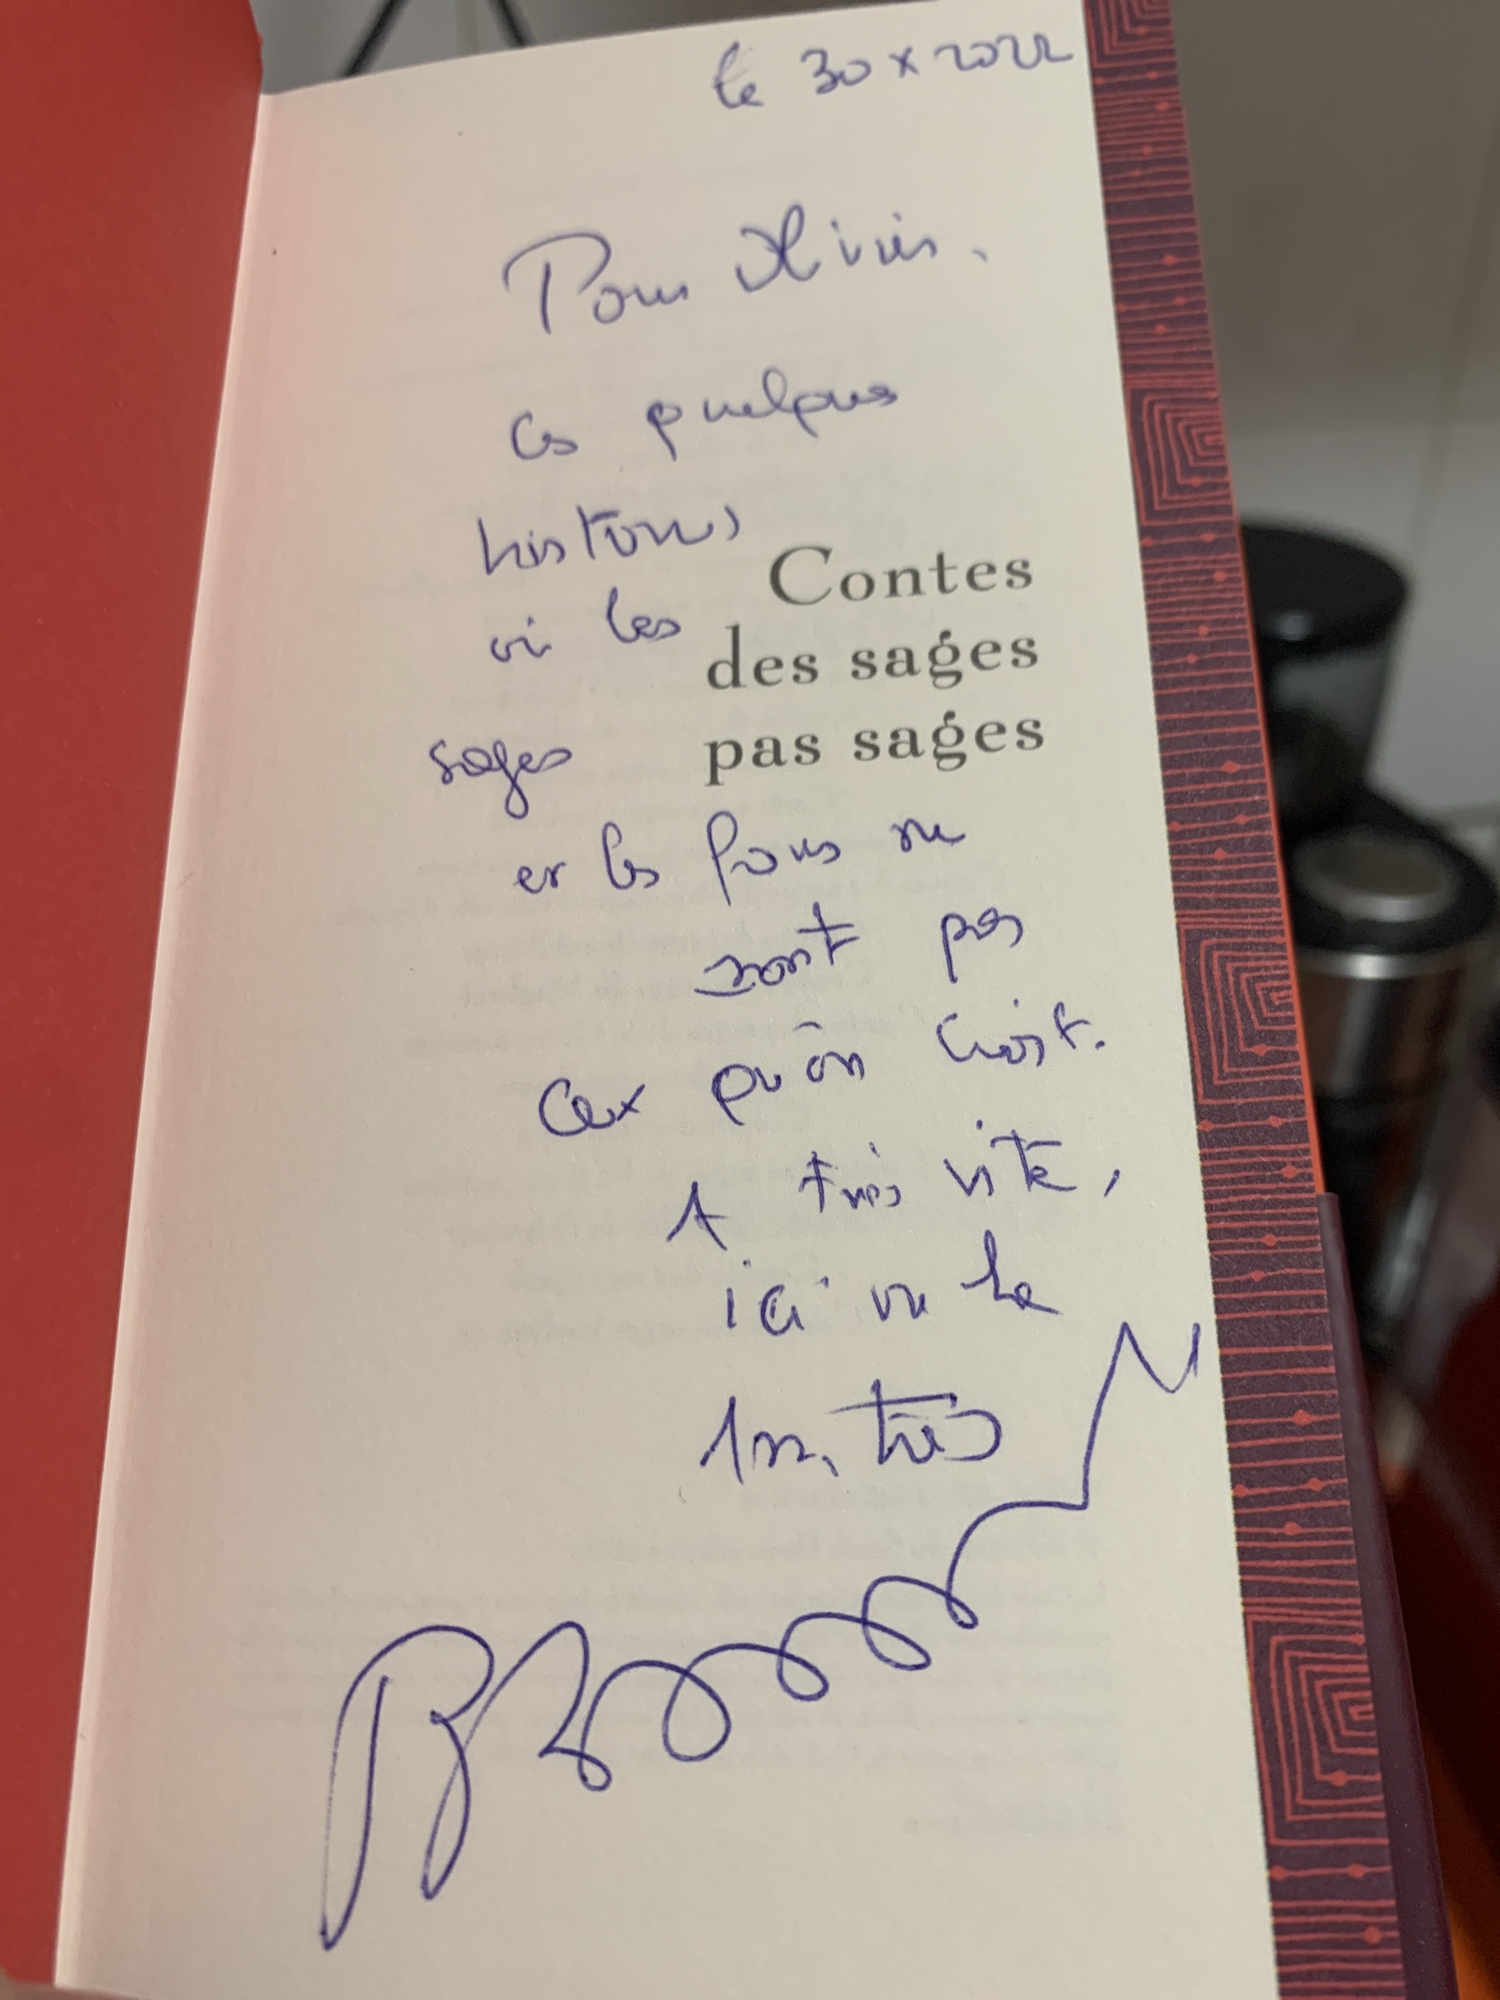 le 30 x 2022
Pour Olivier.
Ces quelques
histoires
où les
Contes
des sages
pas sages
sages
et les fous ne
sont pas
ceux qu'on croit.
A très vite,
ici ou là